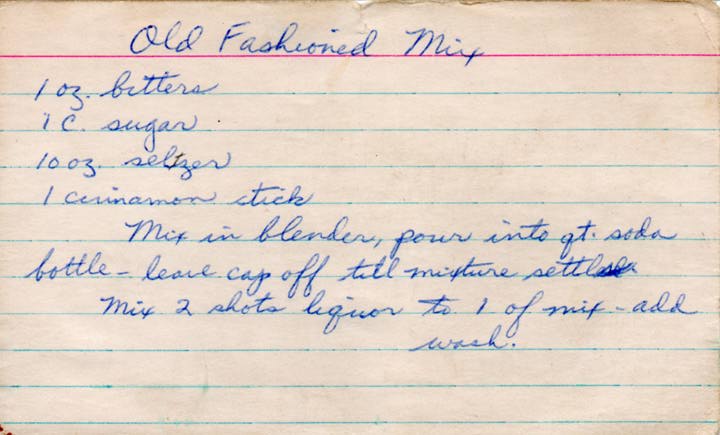 Old Fashioned Mix
1 oz. bitters
1 c. sugar
10 oz. seltzer
1 cinnamon stick
Mix in blender, pour into qt. soda
bottle - leave cap off till mixture settles
Mix 2 shots liquor to 1 of mix - add
wash.